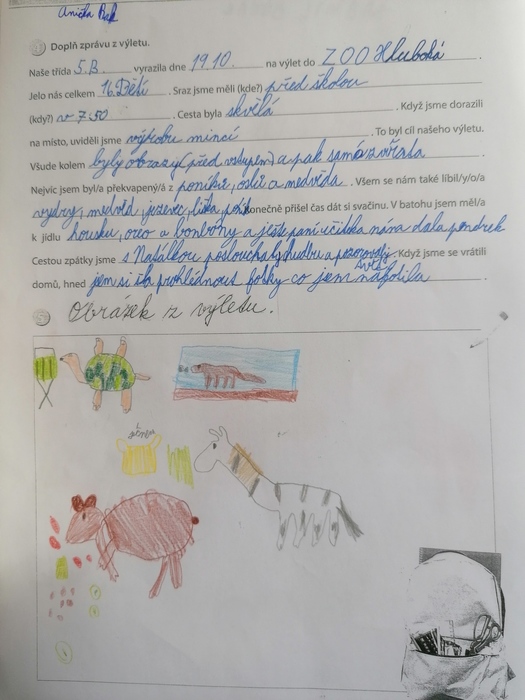 Anička
Doplň zprávu z výletu.
Naše třída 5.B vyrazila dne 19.10. na výlet do ZOO Hluboká
Jelo nás celkem 16. Dětí. Sraz jsme měli (kde?) před školou
(kdy?) v 7.50. Cesta byla skvělá. Když jsme dorazili
na místo, uviděli jsme výrobu mincí. To byl cíl našeho výletu.
Všude kolem byly obrazy (před vstupem) a pak samá zvířata.
Nejvíc jsem byl/a překvapený/á z poníků, oslů a medvěda. Všem se nám také líbil/y/o/a
vydry, medvěd, jezevec, liška. Konečně přišel čas dát si svačinu. V batohu jsem měl/a
k jídlu housku, oreo a bonbony a ještě paní učitelka nám dala pendrek
Cestou zpátky jsme s Natálkou poslouchaly hudbu a pozorovaly. Když jsme se vrátili
domů, hned jsem si šla prohlédnout fotky co jsem nafotila.
Obrázek z výletu.